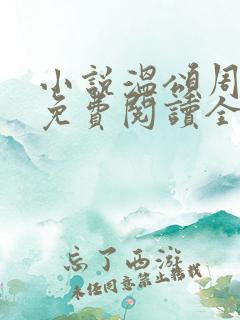 小說溫頌周
免費閱讀全
忘了西游
未经同意禁止转载